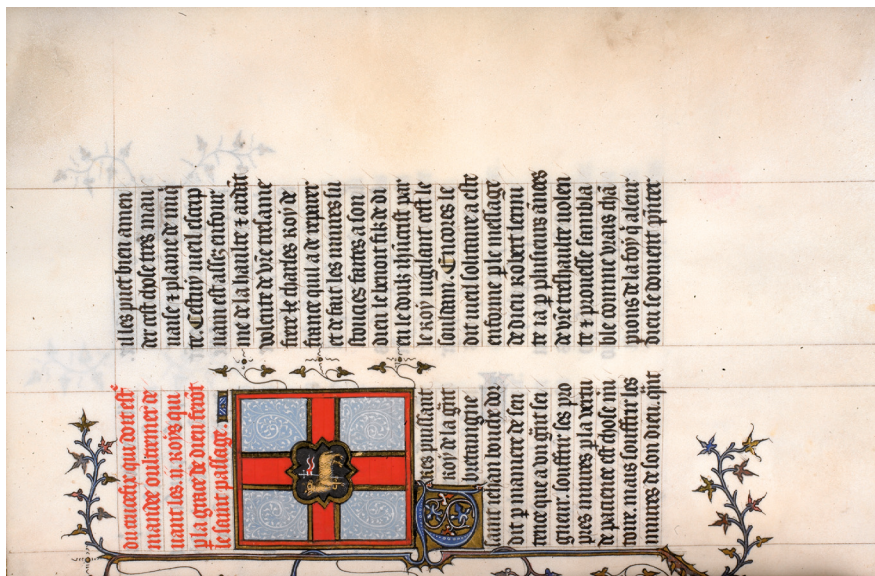 du crucefix qui doit estre
mandee oultremer de
uant les .ii. roys qui
p la grace de dieu feroit
le saint passage.
Tres puissant
Roy de la grãt
bretaingne
touche
dit
ence que a du
gneur. souffrir ses pro
pres iniures p la vertu
de pacience est chose
mais souffrir les
iniures de son dieu.
il les puet bien amen
der est chose tres mau
uaise & plaine de iniq
te. Cestui vieil escrip
uain est assez enfour
me de la haulte & ardãt
volente de vre tresame
frere le charles Roy de
france quil a de reparer
et de fait les iniures
faites a son
dieu le benoit filz de di
eu le doulz par
le Roy uiglant cest le
souldain. Encores le
dit vieil solitaire a este
enforme p le message
de dieu Robert lermi
te ia p plusieurs ãnees
de vre treshaulte volen
te & promesse sembla
ble comme vrais chã
pions de la foy q a leur
dieu se doiuent pñter